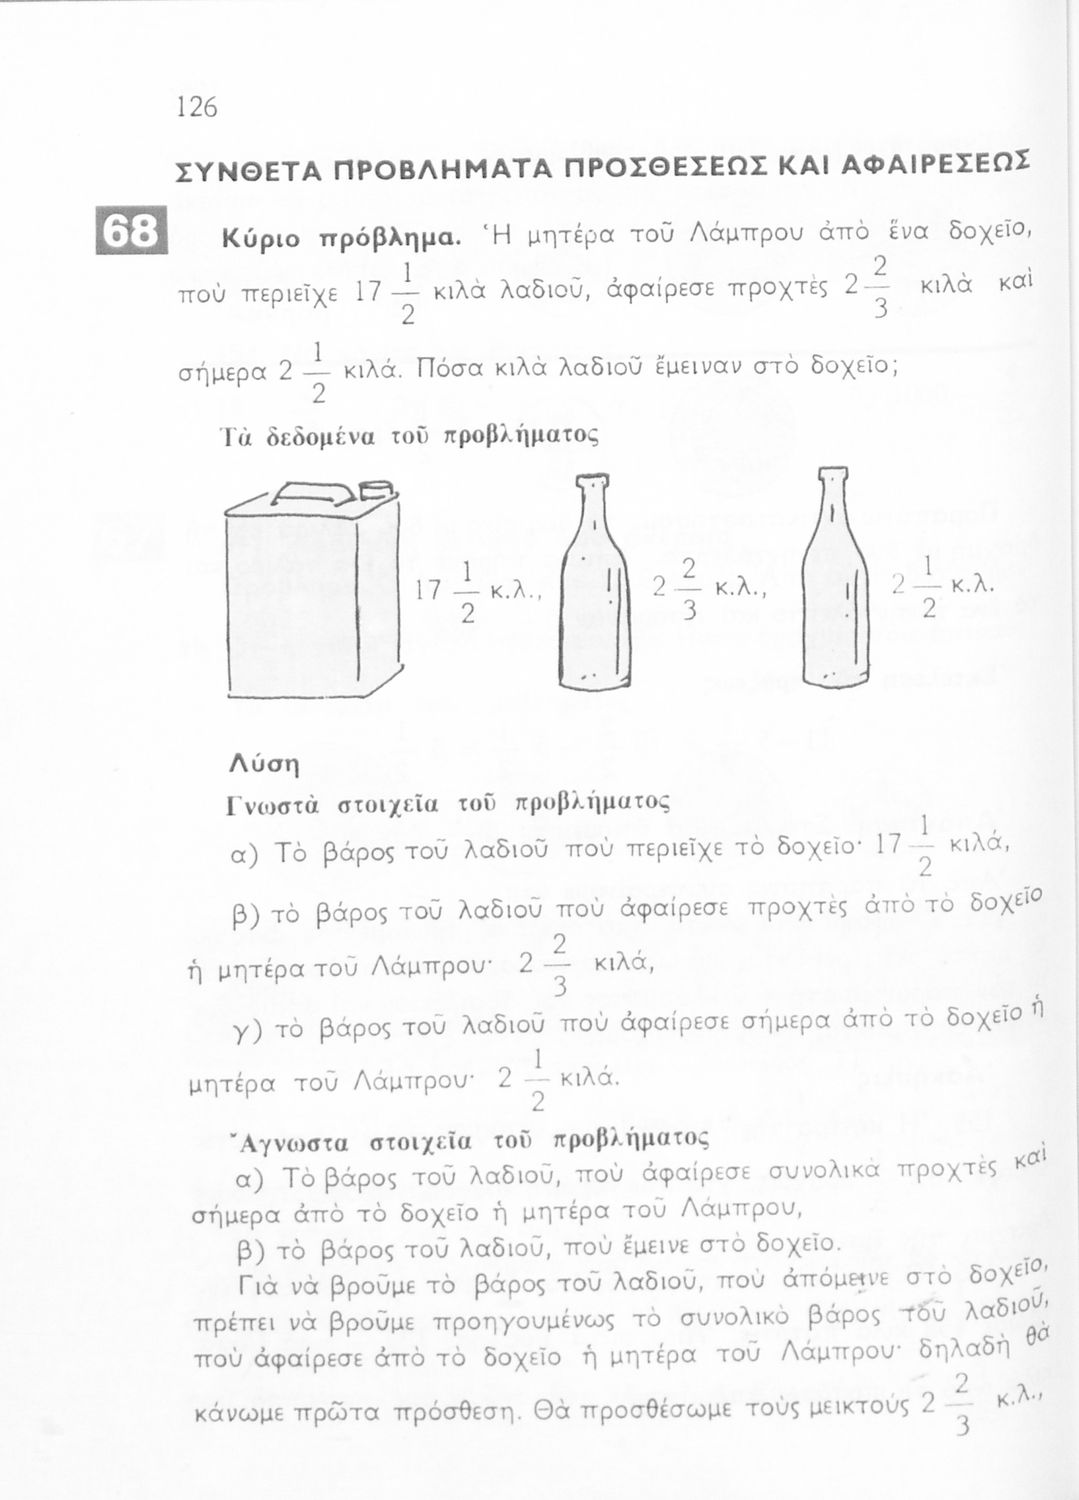 126
ΣΥΝΘΕΤΑ ΠΡΟΒΛΗΜΑΤΑ ΠΡΟΣΘΕΣΕΩΣ ΚΑΙ ΑΦΑΙΡΕΣΕΩΣ
68 Κύριο πρόβλημα. Ἡ μητέρα τοῦ Λάμπρου ἀπὸ ἕνα δοχεῖο,
ποὺ περιεῖχε 17 1/2 κιλὰ λαδιοῦ, ἀφαίρεσε προχτὲς 2 2/3 κιλὰ καὶ
σήμερα 2 1/2 κιλά. Πόσα κιλὰ λαδιοῦ ἔμειναν στὸ δοχεῖο;
Τὰ δεδομένα τοῦ προβλήματος
17 1/2 κ.λ., 2 2/3 κ.λ., 2 1/2 κ.λ.
Λύση
Γνωστὰ στοιχεῖα τοῦ προβλήματος
α) Τὸ βάρος τοῦ λαδιοῦ ποὺ περιεῖχε τὸ δοχεῖο· 17 1/2 κιλά,
β) τὸ βάρος τοῦ λαδιοῦ ποὺ ἀφαίρεσε προχτὲς ἀπὸ τὸ δοχεῖο
ἡ μητέρα τοῦ Λάμπρου· 2 2/3 κιλά,
γ) τὸ βάρος τοῦ λαδιοῦ ποὺ ἀφαίρεσε σήμερα ἀπὸ τὸ δοχεῖο ἡ
μητέρα τοῦ Λάμπρου· 2 1/2 κιλά.
Ἄγνωστα στοιχεῖα τοῦ προβλήματος
α) Τὸ βάρος τοῦ λαδιοῦ, ποὺ ἀφαίρεσε συνολικὰ προχτὲς καὶ
σήμερα ἀπὸ τὸ δοχεῖο ἡ μητέρα τοῦ Λάμπρου,
β) τὸ βάρος τοῦ λαδιοῦ, ποὺ ἔμεινε στὸ δοχεῖο.
Γιὰ νὰ βροῦμε τὸ βάρος τοῦ λαδιοῦ, ποὺ ἀπόμεινε στὸ δοχεῖο,
πρέπει νὰ βροῦμε προηγουμένως τὸ συνολικὸ βάρος τοῦ λαδιοῦ,
ποὺ ἀφαίρεσε ἀπὸ τὸ δοχεῖο ἡ μητέρα τοῦ Λάμπρου· δηλαδὴ θὰ
κάνωμε πρῶτα πρόσθεση. Θὰ προσθέσωμε τοὺς μεικτοὺς 2 2/3 κ.λ.,